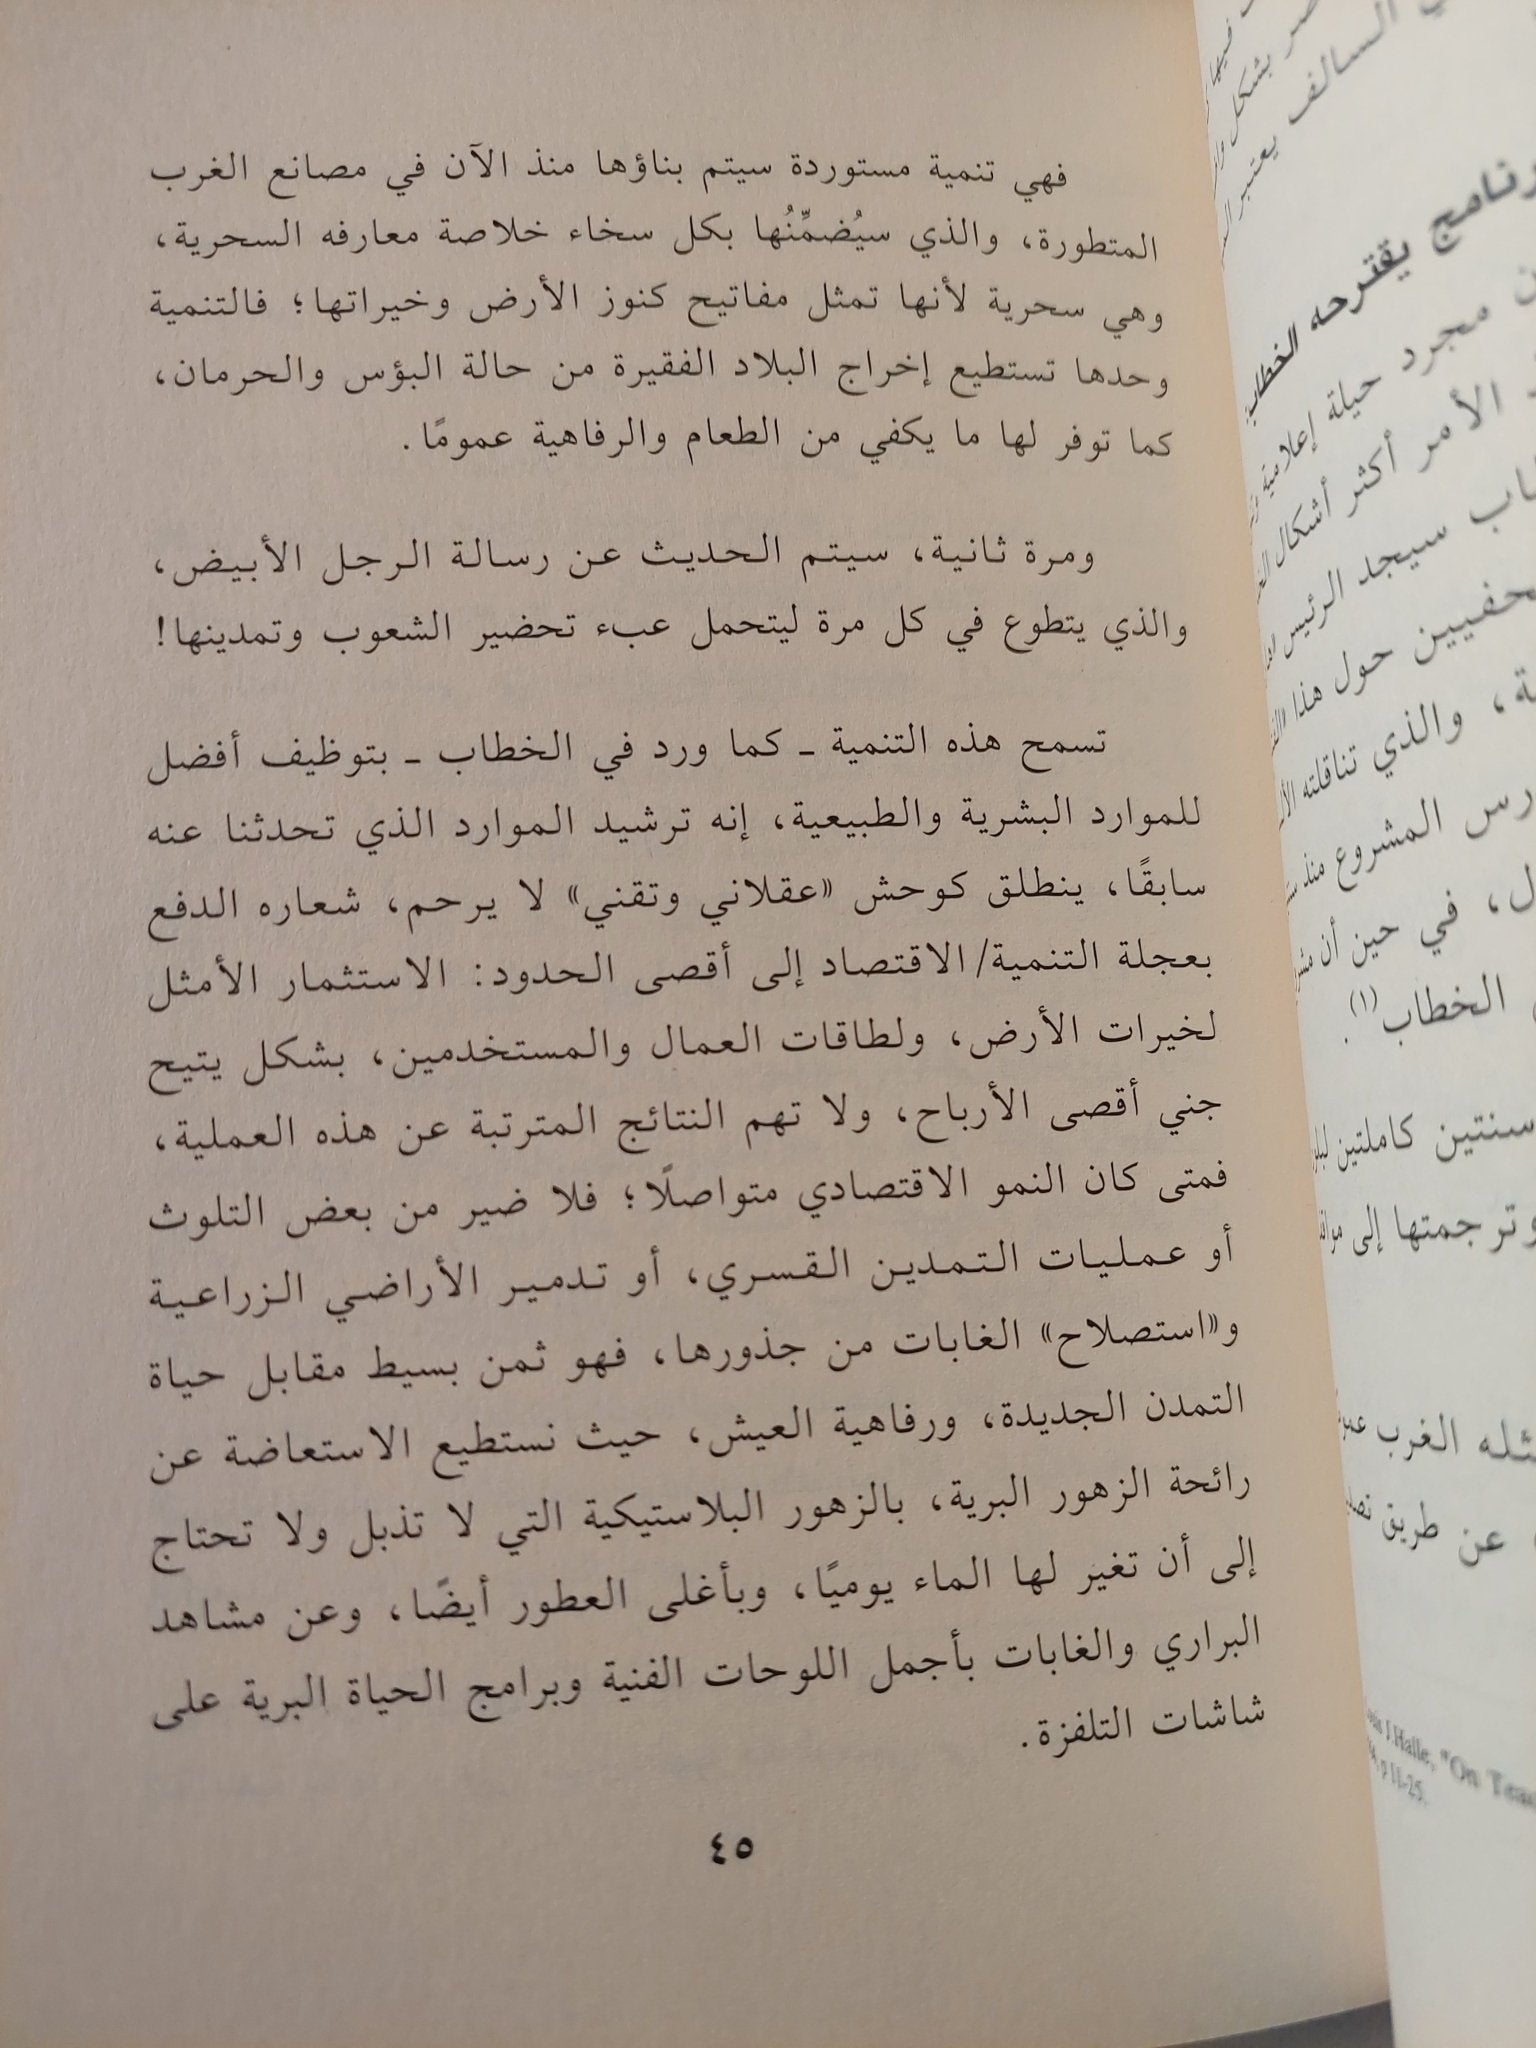 فهي تنمية مستوردة سيتم بناؤها منذ الآن في مصانع الغرب
المتطورة، والذي سيُضمِّنُها بكل سخاء خلاصة معارفه السحرية،
وهي سحرية لأنها تمثل مفاتيح كنوز الأرض وخيراتها؛ فالتنمية
وحدها تستطيع إخراج البلاد الفقيرة من حالة البؤس والحرمان،
كما توفر لها ما يكفي من الطعام والرفاهية عمومًا.
ومرة ثانية، سيتم الحديث عن رسالة الرجل الأبيض،
والذي يتطوع في كل مرة ليتحمل عبء تحضير الشعوب وتمدينها!
تسمح هذه التنمية ـ كما ورد في الخطاب ـ بتوظيف أفضل
للموارد البشرية والطبيعية، إنه ترشيد الموارد الذي تحدثنا عنه
سابقًا، ينطلق كوحش «عقلاني وتقني» لا يرحم، شعاره الدفع
بعجلة التنمية/الاقتصاد إلى أقصى الحدود: الاستثمار الأمثل
لخيرات الأرض، ولطاقات العمال والمستخدمين، بشكل يتيح
جني أقصى الأرباح، ولا تهم النتائج المترتبة عن هذه العملية،
فمتى كان النمو الاقتصادي متواصلًا؛ فلا ضير من بعض التلوث
أو عمليات التمدين القسري، أو تدمير الأراضي الزراعية
و«استصلاح» الغابات من جذورها، فهو ثمن بسيط مقابل حياة
التمدن الجديدة، ورفاهية العيش، حيث نستطيع الاستعاضة عن
رائحة الزهور البرية، بالزهور البلاستيكية التي لا تذبل ولا تحتاج
إلى أن تغير لها الماء يوميًا، وبأغلى العطور أيضًا، وعن مشاهد
البراري والغابات بأجمل اللوحات الفنية وبرامج الحياة البرية على
شاشات التلفزة.
٤٥
السالف يعتبر
يقترحه الخطاب
مجرد حيلة إعلامية
الأمر أكثر أشكال
سيجد الرئيس
حول هذا
والذي تناقلته
المشروع منذ
في حين أن
الخطاب(١).
سنتين كاملتين
وترجمتها إلى
الغرب
عن طريق
J Halle, "On
p 11-25.